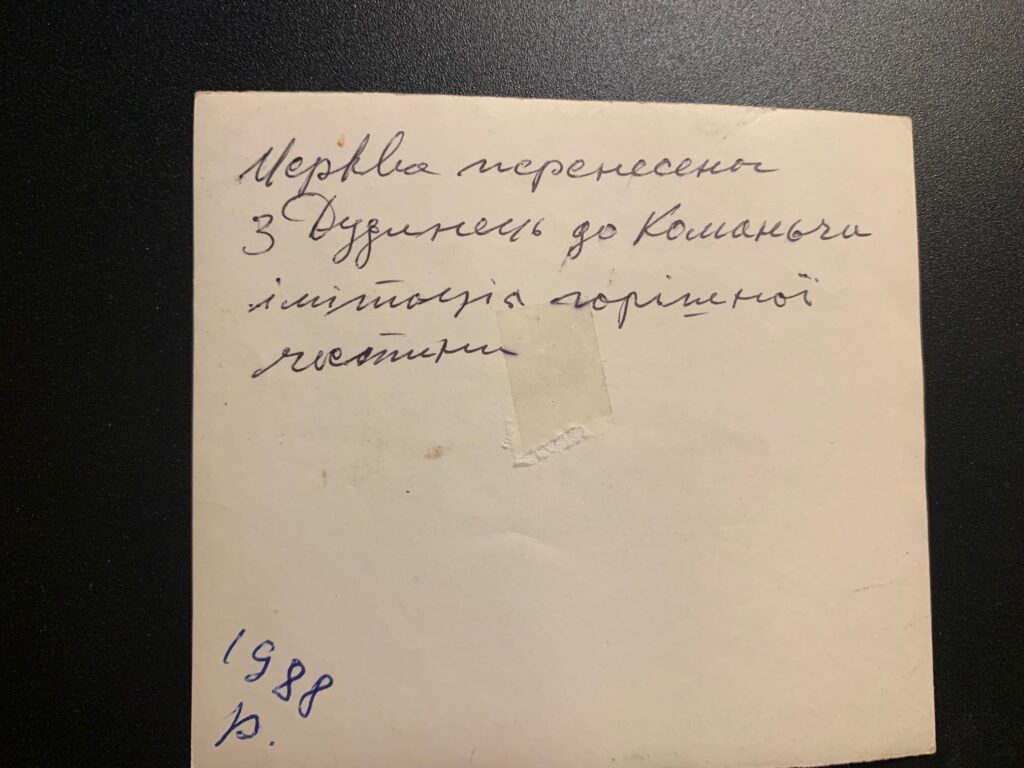 Церква перенесена
з Дудинець до Команьчи
імітація горішної
частини
1988
р.